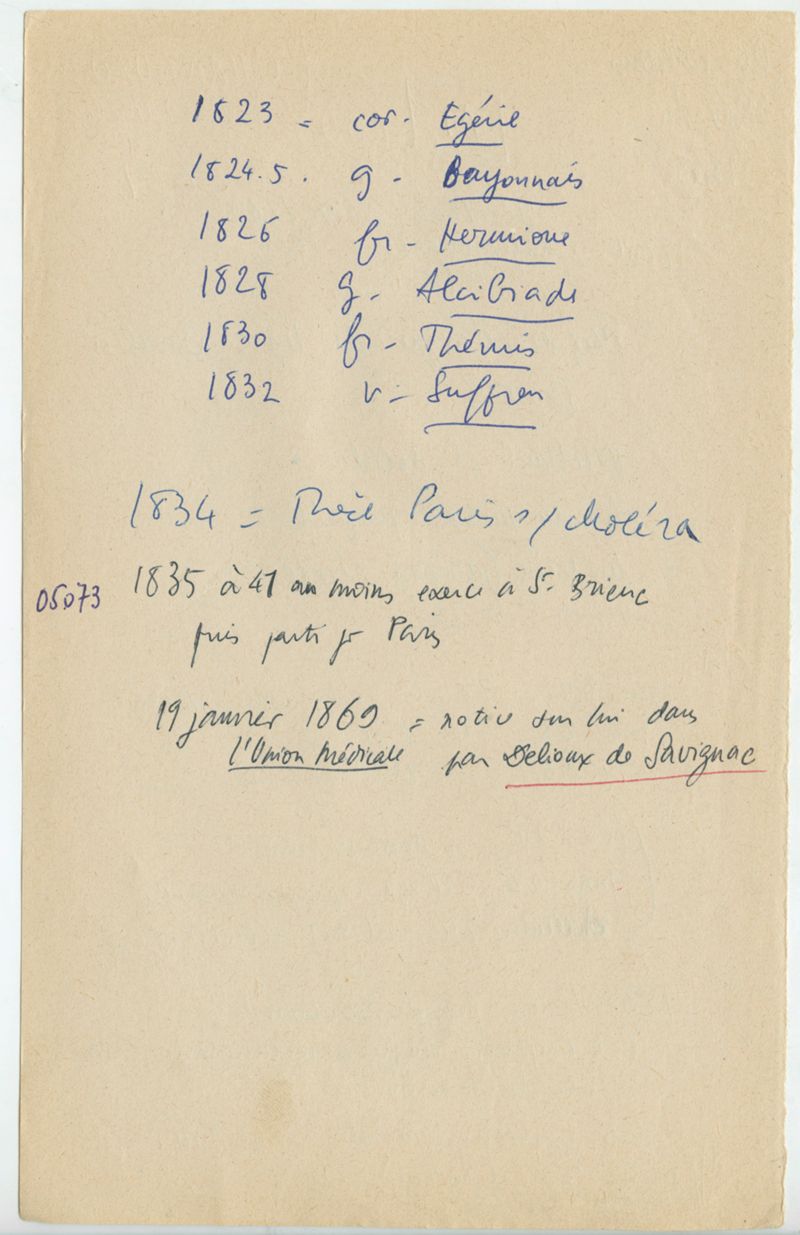 1823 = cor. Egérie
1824.5. g - Bayonnais
1826 fr - Hermione
1828 g - Alcibiade
1830 fr - Thémis
1832 v - Suffren
1834 = Thèse Paris s/ choléra
05073 1835 à 41 au moins exerce à St Brieuc
puis parti pr Paris
19 janvier 1869 = notice sur lui dans
l'Union Médicale par Delioux de Savignac